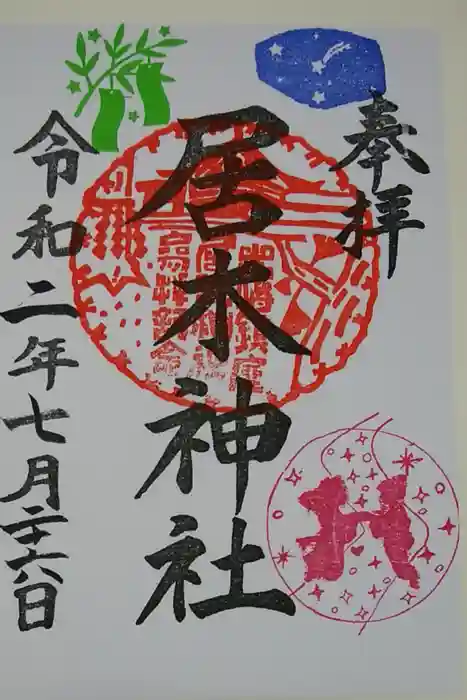 奉拝
居木神社
令和二年七月二十六日